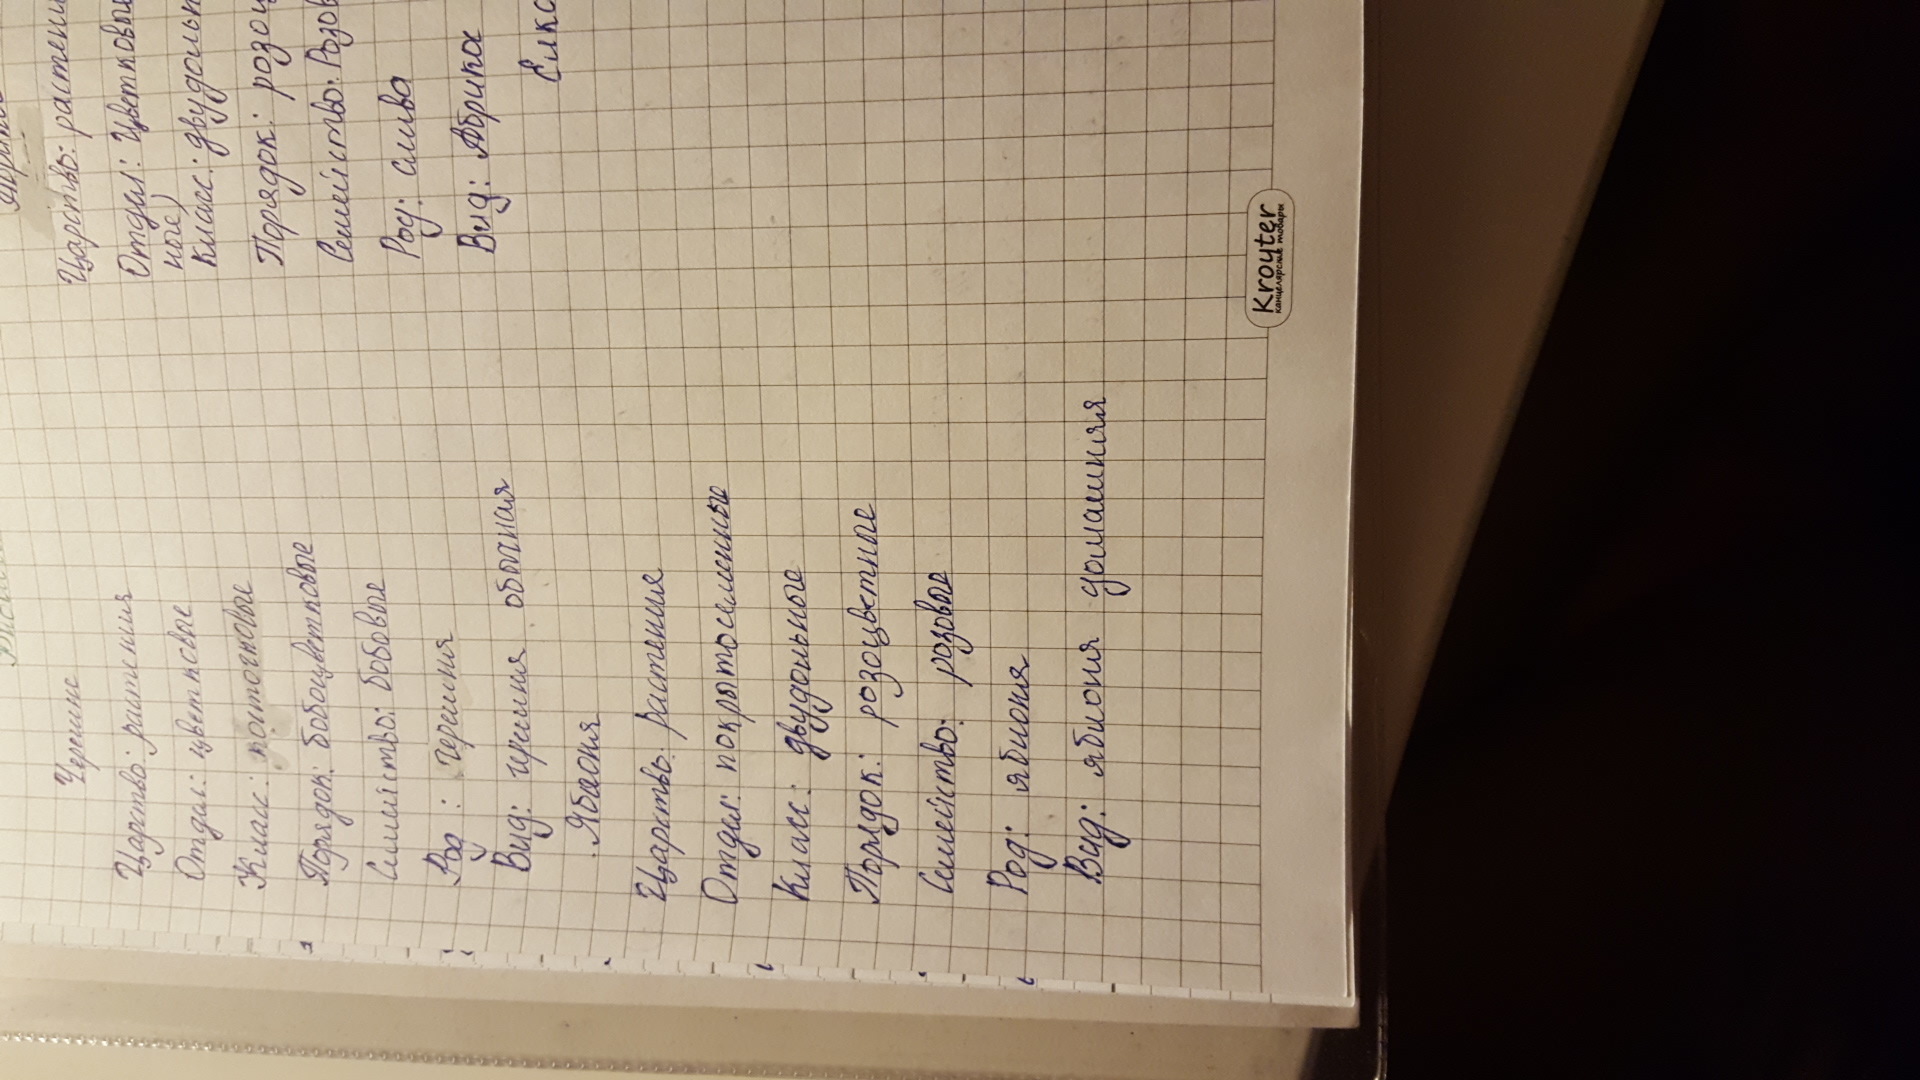 Царство: растения
Отдел: цветковые
Класс:
Порядок: бобоцветковые
Семейство: бобовые
Род:
Вид: обычная
Яблоня
Царство: растение
Отдел: покрытосеменные
Класс: двудольные
Порядок: розоцветные
Семейство: розовые
Род: яблоня
Вид: яблоня домашняя
Царство: растени
Отдел: Цветковые
ное)
Класс: двудольн
Порядок: розоц
Семейство: Розов
Род: слива
Вид: Абрикос
Krouter
канцелярские товары